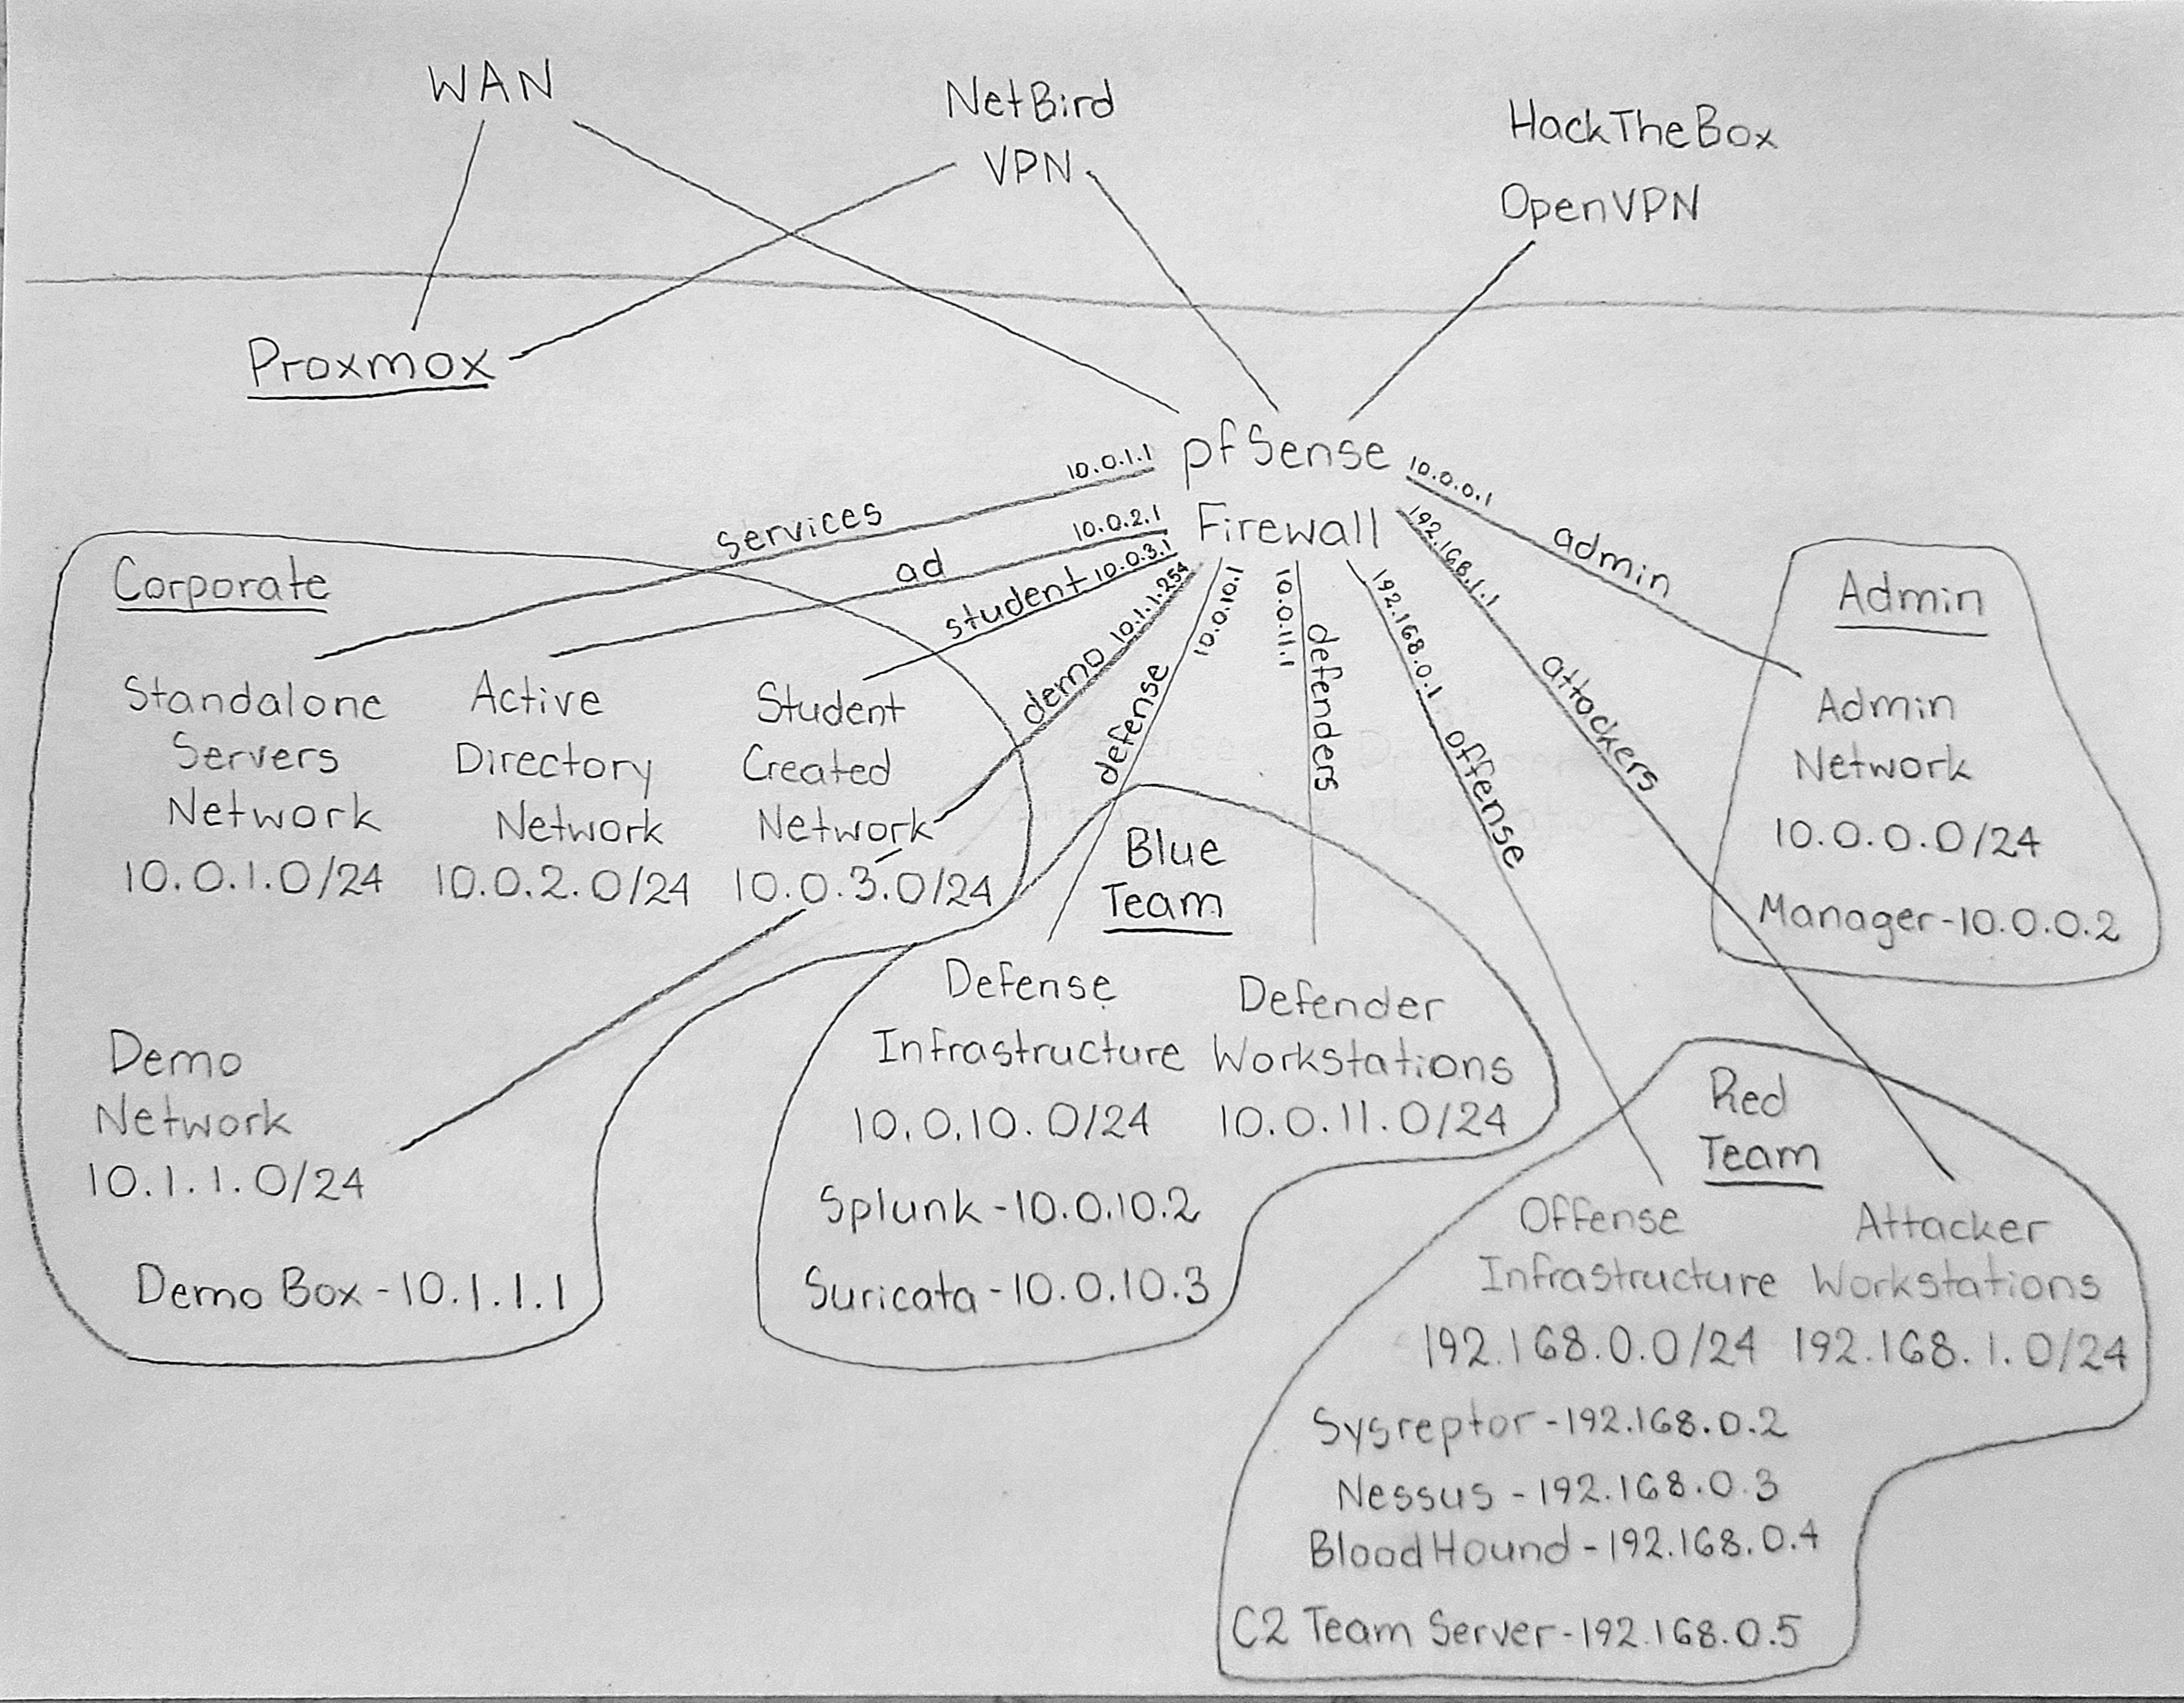 WAN
NetBird
VPN
HackTheBox
OpenVPN
Proxmox
pfSense
Firewall
10.0.1.1
services
10.0.2.1
ad
10.0.3.1
student
10.1.1.254
demo
10.0.10.1
defense
10.0.11.1
defenders
192.168.0.1
offense
192.168.1.1
attackers
10.0.0.1
admin
Corporate
Standalone
Servers
Network
10.0.1.0/24
Active
Directory
Network
10.0.2.0/24
Student
Created
Network
10.0.3.0/24
Demo
Network
10.1.1.0/24
Demo Box - 10.1.1.1
Blue
Team
Defense
Infrastructure
10.0.10.0/24
Defender
Workstations
10.0.11.0/24
Splunk - 10.0.10.2
Suricata - 10.0.10.3
Admin
Admin
Network
10.0.0.0/24
Manager - 10.0.0.2
Red
Team
Offense
Infrastructure
192.168.0.0/24
Attacker
Workstations
192.168.1.0/24
Sysreptor - 192.168.0.2
Nessus - 192.168.0.3
BloodHound - 192.168.0.4
C2 Team Server - 192.168.0.5